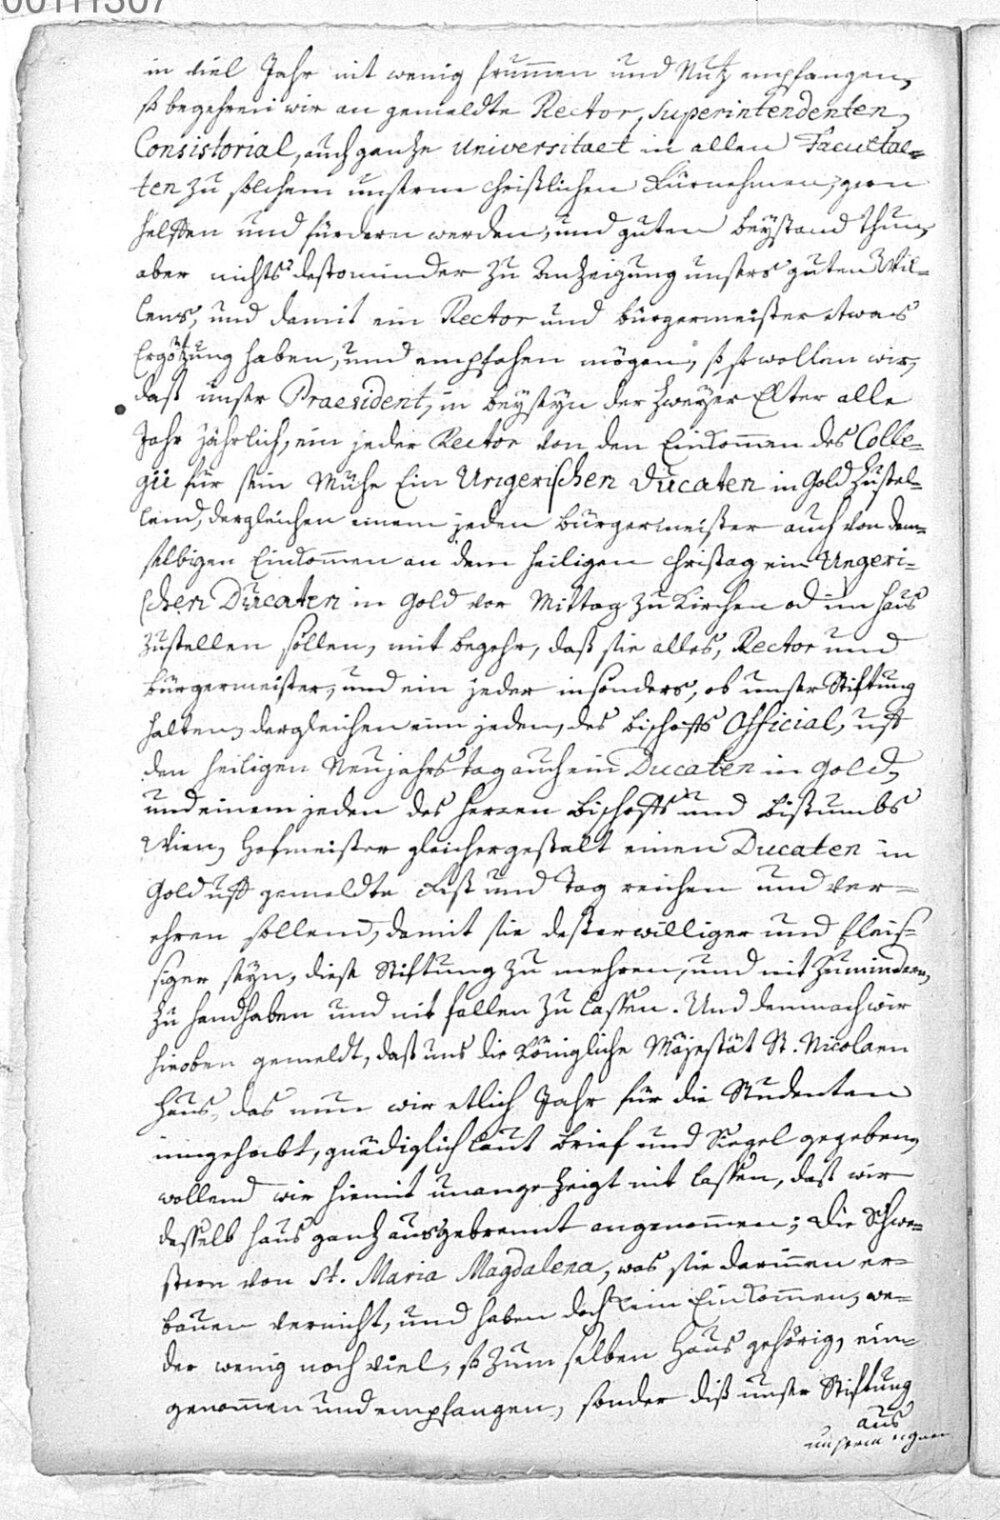 in viel Jahr nit wenig frummen und Nutz empfangen,
so begehren wir an gemeldte Rector, Superintendenten,
Consistorial, auch gantze Universitaet in allen Facultae-
ten zu solchem unserm christlichen Fürnehmen, gern
helffen und fürdern werden, und guten beystand thun,
aber nichts destominder zu Anzeigung unsers guten Wil-
lens, und damit ein Rector und bürgermeister etwas
Ergötzung haben, und empfahen mögen, so wollen wir,
dass unser Praesident, in beyseyn der zweyer Elter alle
Jahr jährlich, ein jeder Rector von den Einkommen des Colle-
gii für sein Mühe Ein Ungerischen Ducaten in Gold zustel-
lend, dergleichen einem jeden bürgermeister auch von dem-
selbigen Einkommen an dem heiligen Christag ein Ungeri-
schen Ducaten in Gold vor Mittag zu Kirchen od im Haus
zustellen sollen, mit begehr, dass sie alles, Rector und
bürgermeister, und ein jeder insonders, ob unser Stiftung
halten, dergleichen eim jeden, des bischoffs Official, uff
den heiligen Neujahrstag auch ein Ducaten in Gold,
und einem jeden des Herren Bischoffs und Bistumbs
Wien, Hofmeister gleichergestalt einen Ducaten in
Gold uff gemeldte Fest und Tag reichen und ver-
ehren sollend, damit sie desterwilliger und fleis-
siger seyn, diese Stiftung zu mehren, und nit zu mindern,
zu handhaben und nit fallen zu lassen. Und demnach wir
hieoben gemeldt, dass uns die Königliche Mäjestät St. Nicolaen
Haus, das nun wir etlich Jahr für die Studenten
inngehabt, gnädiglich laut Brief und Siegel gegeben,
wollend wir hiemit unangezeigt nit lassen, dass wir
desselb Haus gantz ausgebrennt angenommen; die Schwe-
stern von St. Maria Magdalena, was sie darinnen er-
bauen vernicht, und haben doch kein Einkommen, we-
der wenig noch viel, so zum selben Haus gehörig, ein-
genommen und empfangen, sonder diss unser Stiftung
aus
unserm eignen